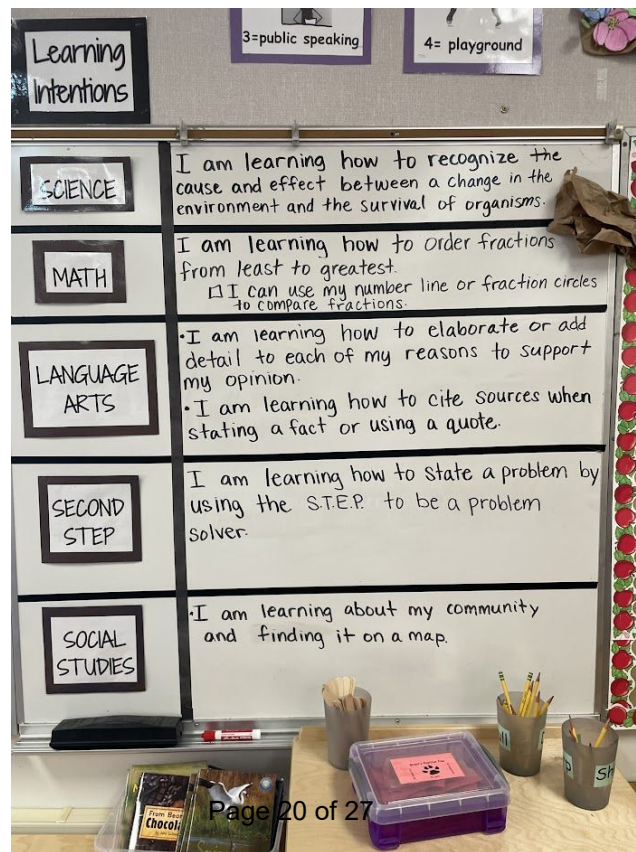 3=public speaking
4= playground
Learning
Intentions
SCIENCE
I am learning how to recognize the
cause and effect between a change in the
environment and the survival of organisms.
MATH
I am learning how to order fractions
from least to greatest.
I can use my number line or fraction circles
to compare fractions.
LANGUAGE
ARTS
•I am learning how to elaborate or add
detail to each of my reasons to support
my opinion.
•I am learning how to cite sources when
stating a fact or using a quote.
SECOND
STEP
I am learning how to state a problem by
using the S.T.E.P. to be a problem
solver.
SOCIAL
STUDIES
•I am learning about my community
and finding it on a map.
From Bean
Chocola
Sh
Page 20 of 27